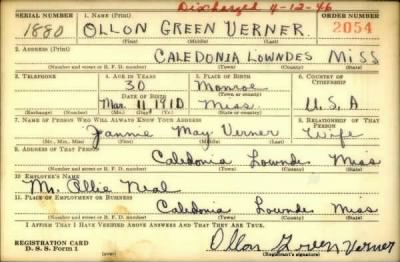 Discharged 4-12-46
SERIAL NUMBER 1. NAME (Print) ORDER NUMBER
1880 OLLON GREEN VERNER 2054
(First) (Middle) (Last)
2. ADDRESS (Print)
CALEDONIA LOWNDES MISS
(Number and street or R. F. D. number) (Town) (County) (State)
3. TELEPHONE 4. AGE IN YEARS 5. PLACE OF BIRTH 6. COUNTRY OF CITIZENSHIP
30 Monroe
DATE OF BIRTH (Town or county)
Mar. 11 1910 Miss. U.S.A
(Mo.) (Day) (Yr.) (State or country)
7. NAME OF PERSON WHO WILL ALWAYS KNOW YOUR ADDRESS 8. RELATIONSHIP OF THAT PERSON
Fannie May Verner Wife
(Mr., Mrs., Miss) (First) (Middle) (Last)
9. ADDRESS OF THAT PERSON
Caledonia Lowndes Miss
(Number and street or R. F. D. number) (Town) (County) (State)
10. EMPLOYER'S NAME
Mr. Ollie Neal
11. PLACE OF EMPLOYMENT OR BUSINESS
Caledonia Lowndes Miss
(Number and street or R. F. D. number) (Town) (County) (State)
I AFFIRM THAT I HAVE VERIFIED ABOVE ANSWERS AND THAT THEY ARE TRUE.
REGISTRATION CARD
D. S. S. Form 1 (over) Ollon Green Verner
(Registrant's signature)